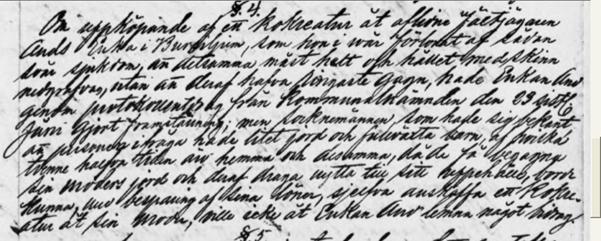 § 4.
Om uppköpande af en kokreatur åt aflidne Fältjägaren
Ands Enka i Bursiljum, som hon i vår förlorat af sådan
svår sjukdom, att detsamma måst helt och hållet med skinn
nedgräfvas, utan att deraf hafva ringaste gagn, hade Enkan And
genom protokollsutdrag från Kommunalnämnden den 23 sistl.
Juni gjort framställning; men socknemännen, som hade sig bekant
att personen ifråga hade litet jord och fullväxta barn, af hvilka
tvenne hafva tiden att hemma och desamma, då de få begagna
sin moders jord och deraf draga nytta till sitt uppehälle, borde
kunna, med besparing af sina löner, sjelfva anskaffa en kokre-
atur åt sin moder, ville icke åt Enkan And lemna något bidrag.
§ 5.